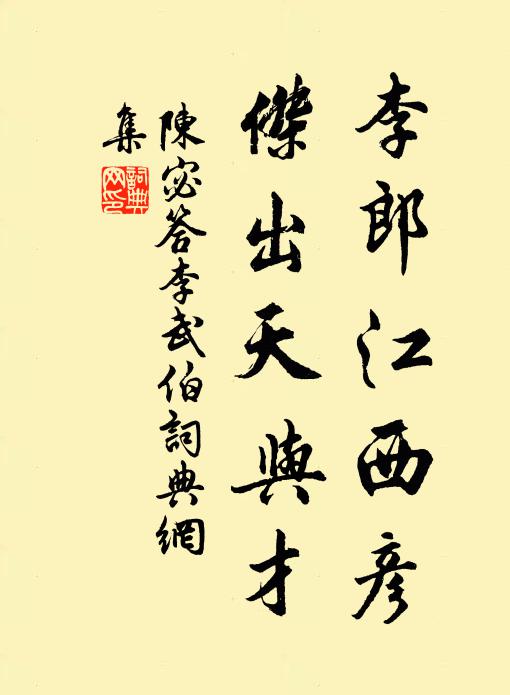 李郎江西彥
傑出天與才
陳宓答李武伯詞典網
集
詞典
网印